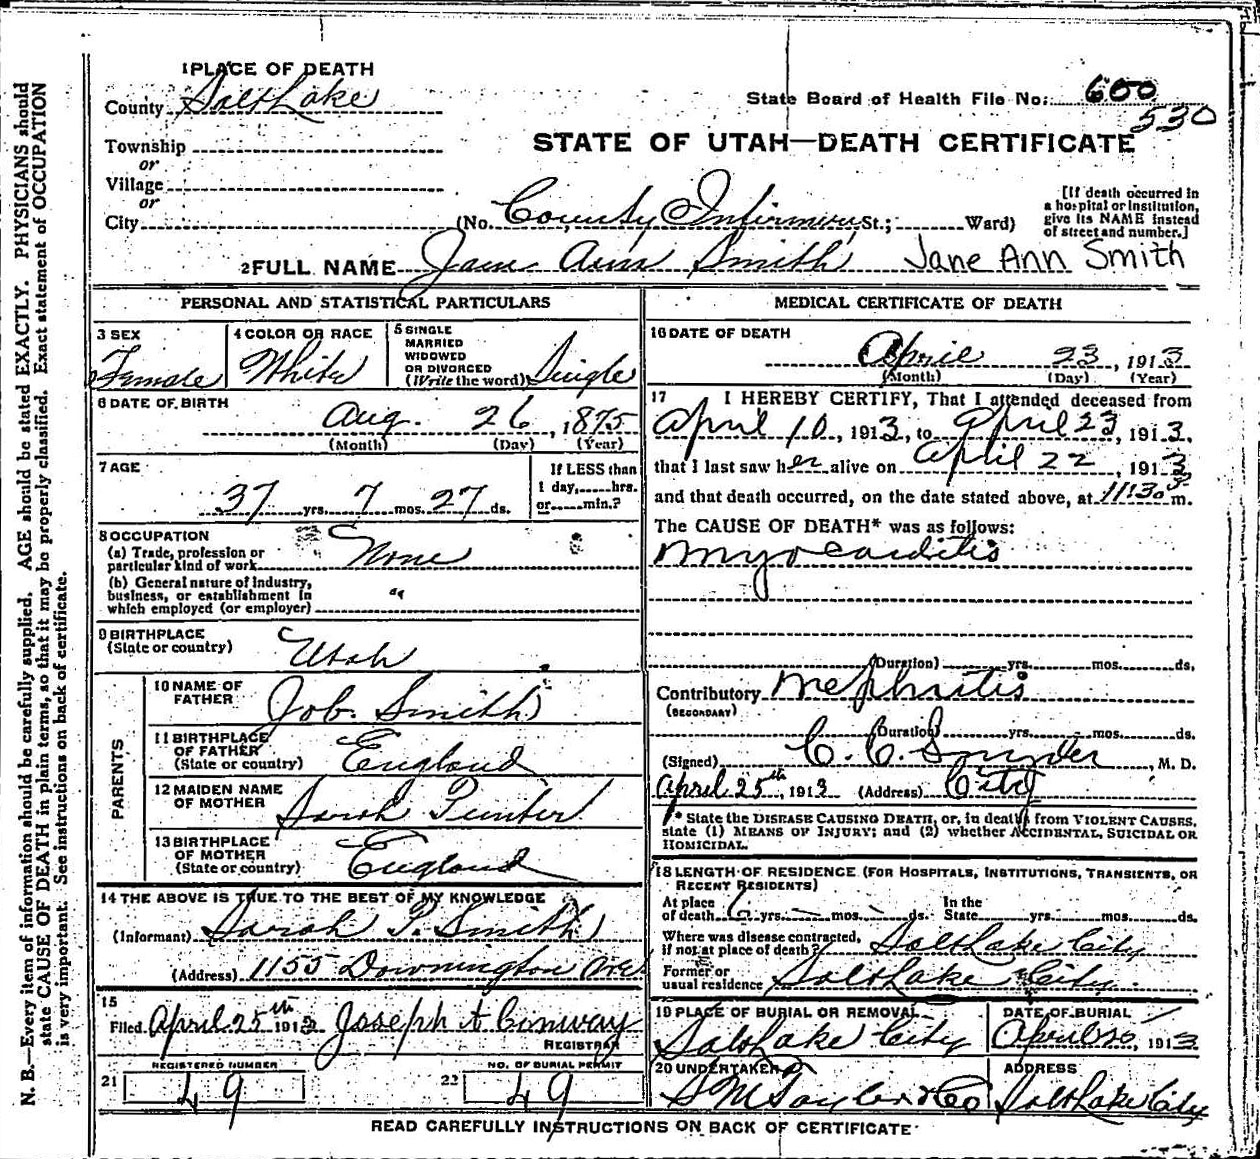 1 PLACE OF DEATH
County Salt Lake
State Board of Health File No. 600
530
Township
or
STATE OF UTAH—DEATH CERTIFICATE
Village
or
City (No. County Infirmary St.; Ward)
[If death occurred in
a hospital or institution,
give its NAME instead
of street and number.]
2 FULL NAME Jane Ann Smith Jane Ann Smith
PERSONAL AND STATISTICAL PARTICULARS
3 SEX
Female
4 COLOR OR RACE
White
5 SINGLE
MARRIED
WIDOWED
OR DIVORCED
(Write the word) Single
6 DATE OF BIRTH
Aug. 26, 1875
(Month) (Day) (Year)
7 AGE
37 yrs. 7 mos. 27 ds.
If LESS than
1 day, hrs.
or min.?
8 OCCUPATION
(a) Trade, profession or
particular kind of work None
(b) General nature of industry,
business, or establishment in
which employed (or employer)
9 BIRTHPLACE
(State or country) Utah
PARENTS
10 NAME OF
FATHER Job Smith
11 BIRTHPLACE
OF FATHER
(State or country) England
12 MAIDEN NAME
OF MOTHER Sarah
13 BIRTHPLACE
OF MOTHER
(State or country) England
14 THE ABOVE IS TRUE TO THE BEST OF MY KNOWLEDGE
(Informant) Sarah P. Smith
(Address) 1155 Downington Ave
15
Filed April 25th 1913 Joseph A Conway
REGISTRAR
REGISTERED NUMBER
21 49
NO. OF BURIAL PERMIT
22 49
MEDICAL CERTIFICATE OF DEATH
16 DATE OF DEATH
April 23, 1913
(Month) (Day) (Year)
17 I HEREBY CERTIFY, That I attended deceased from
April 10, 1913, to April 23, 1913,
that I last saw her alive on April 22, 1913,
and that death occurred, on the date stated above, at 1130 P m.
The CAUSE OF DEATH* was as follows:
Myocarditis
(Duration) yrs. mos. ds.
Contributory Nephritis
(SECONDARY)
(Duration) yrs. mos. ds.
(Signed) C. C. Snyder, M. D.
April 25th, 1913 (Address) City
* State the DISEASE CAUSING DEATH, or, in death from VIOLENT CAUSES,
state (1) MEANS OF INJURY; and (2) whether ACCIDENTAL, SUICIDAL OR
HOMICIDAL.
18 LENGTH OF RESIDENCE (FOR HOSPITALS, INSTITUTIONS, TRANSIENTS, OR
RECENT RESIDENTS)
At place
of death yrs. mos. ds.
In the
State yrs. mos. ds.
Where was disease contracted,
if not at place of death? Salt Lake City
Former or
usual residence Salt Lake City
19 PLACE OF BURIAL OR REMOVAL
Salt Lake City
DATE OF BURIAL
April, 1913
20 UNDERTAKER
S M Taylor & Co
ADDRESS
Salt Lake City
READ CAREFULLY INSTRUCTIONS ON BACK OF CERTIFICATE
N. B.—Every item of information should be carefully supplied. AGE should be stated EXACTLY. PHYSICIANS should
state CAUSE OF DEATH in plain terms, so that it may be properly classified. Exact statement of OCCUPATION
is very important. See instructions on back of certificate.